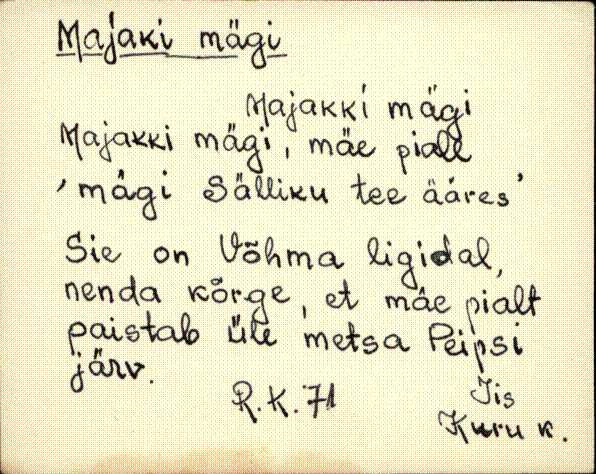 Majaki mägi
Majakki mägi
Majakki mägi, mäe piale
'mägi Sälliku tee ääres'
Sie on Võhma ligidal,
nenda kõrge, et mäe pialt
paistab üle metsa Peipsi
järv.
R.K. 71
Iis
Kuru k.